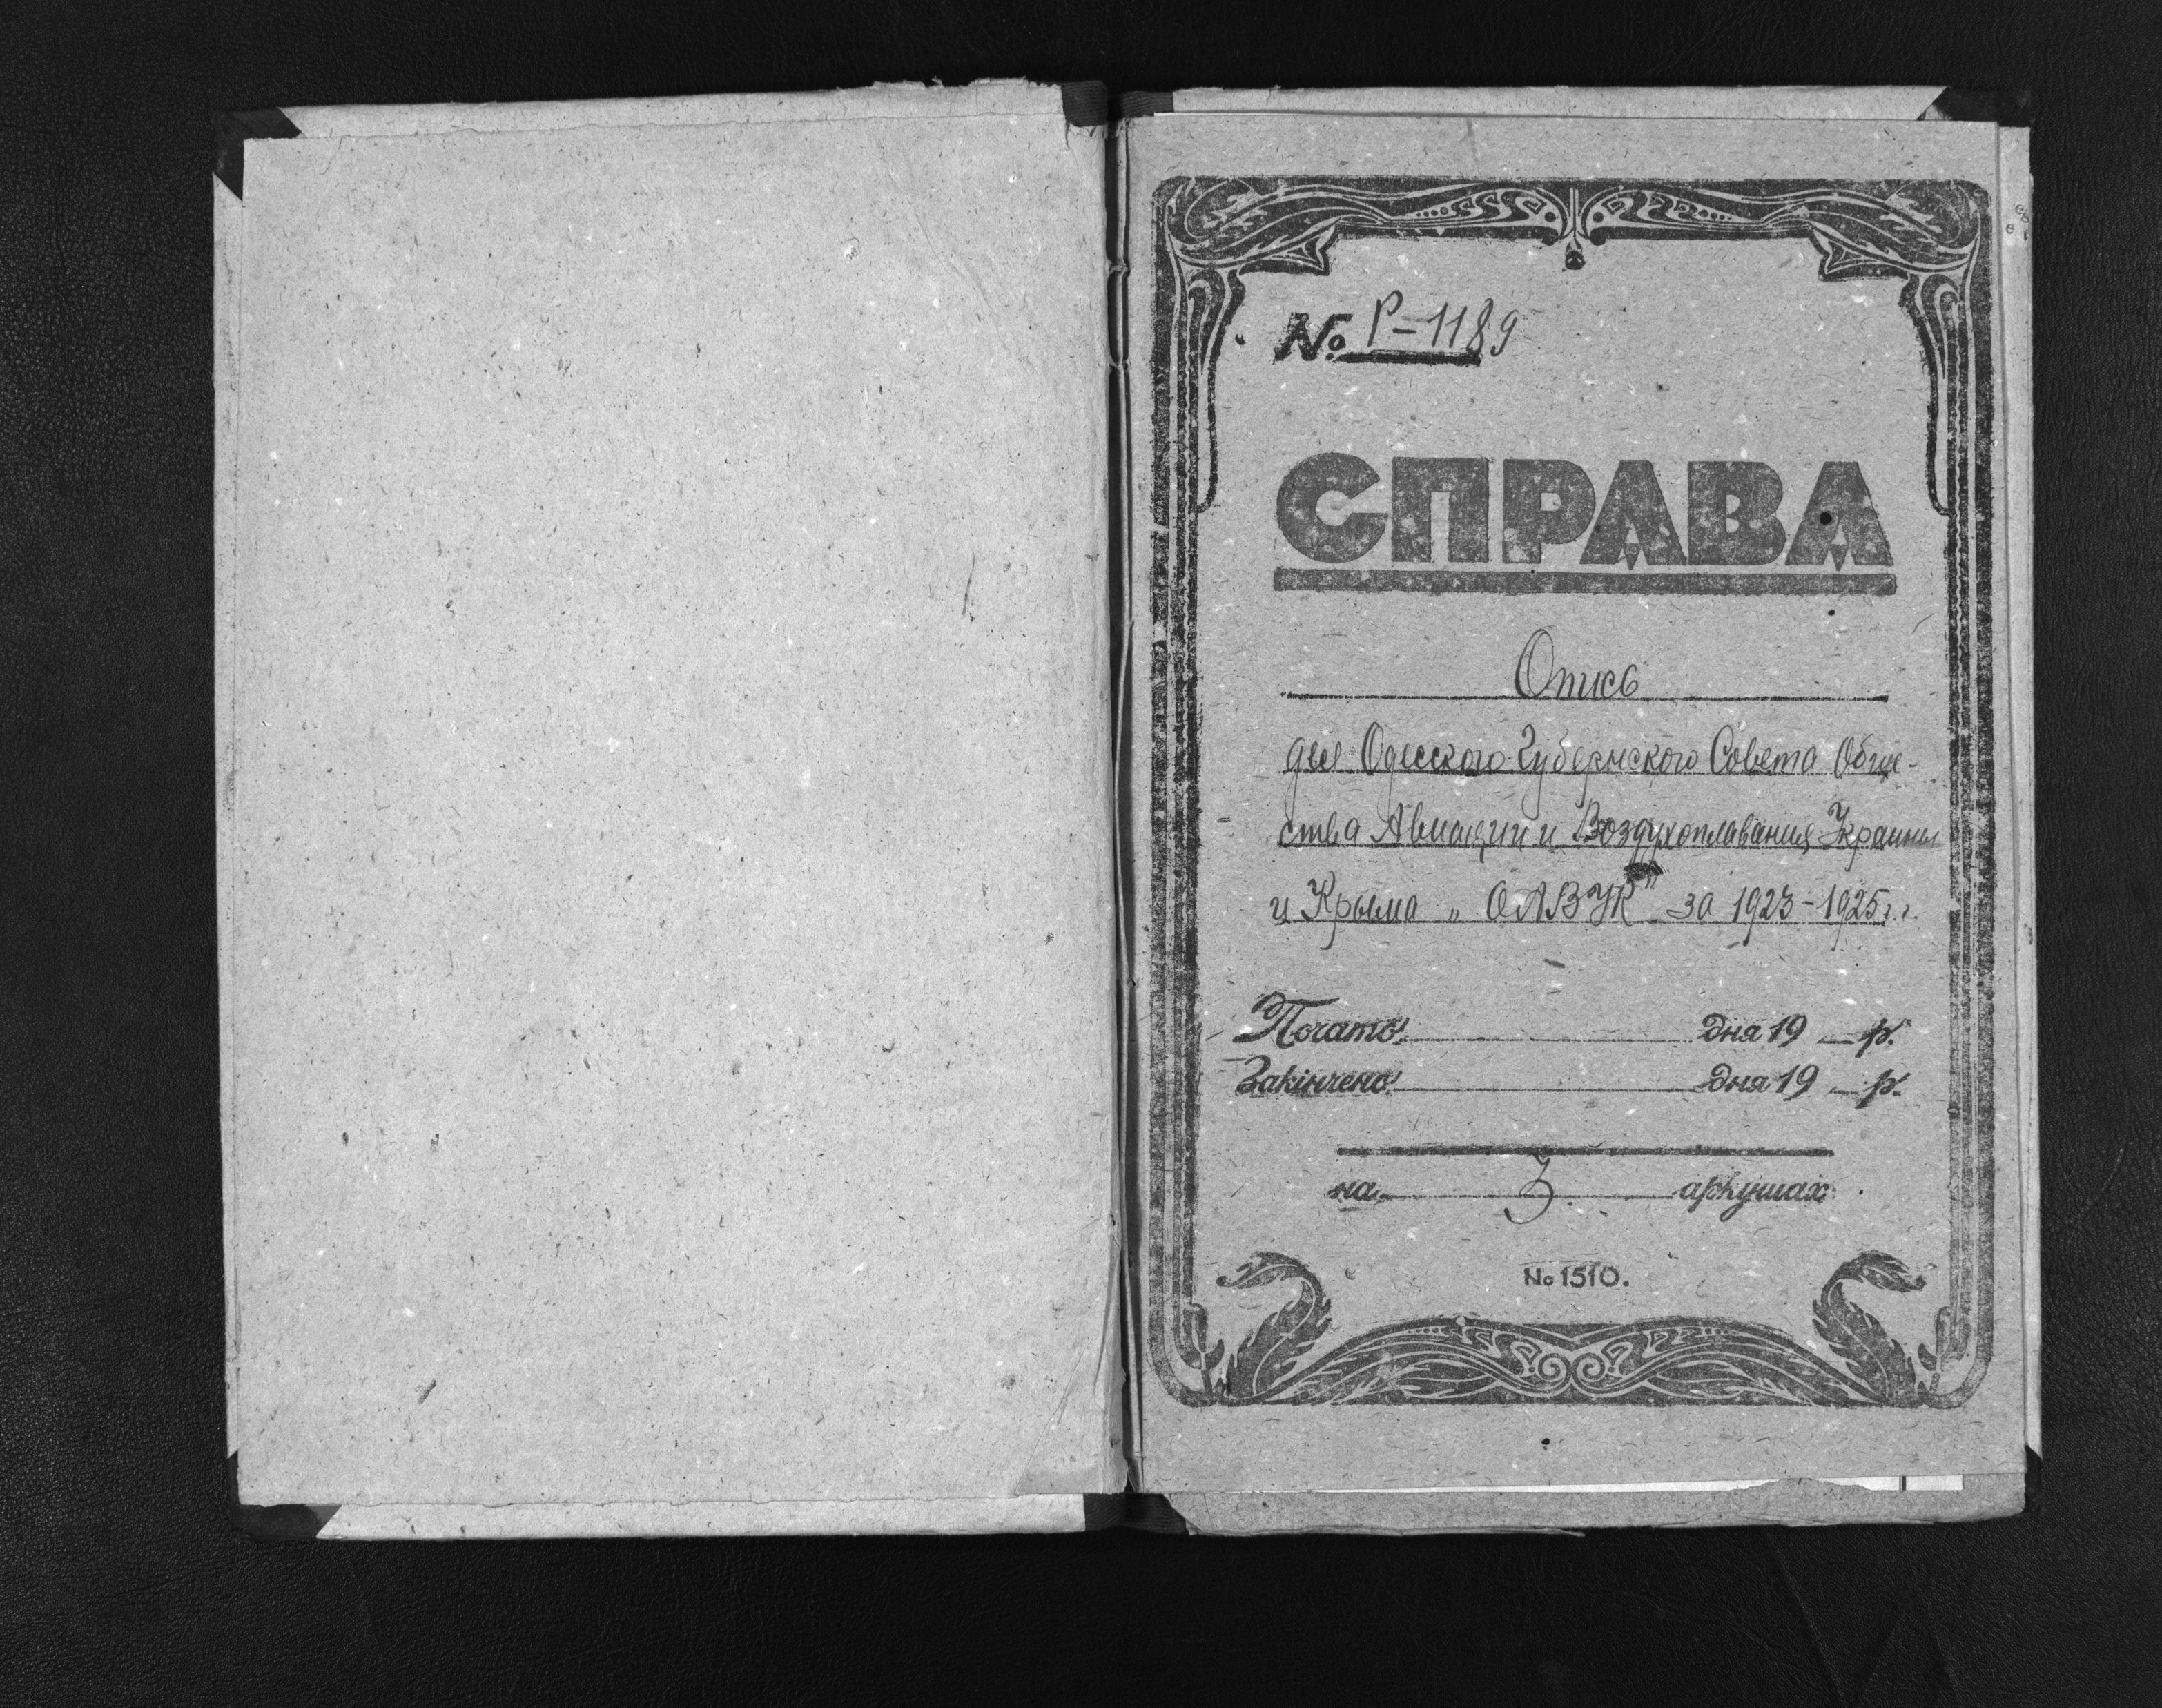 № Р-1189
СПРАВА
Опись
дел Одесского Губернского Совета Обще-
ства Авиации и Воздухоплавания Украины
и Крыма „ОАВУК" за 1923-1925 г.г.
Почато дня 19 р.
Закінчено дня 19 р.
на 3 аркушах
№ 1510.